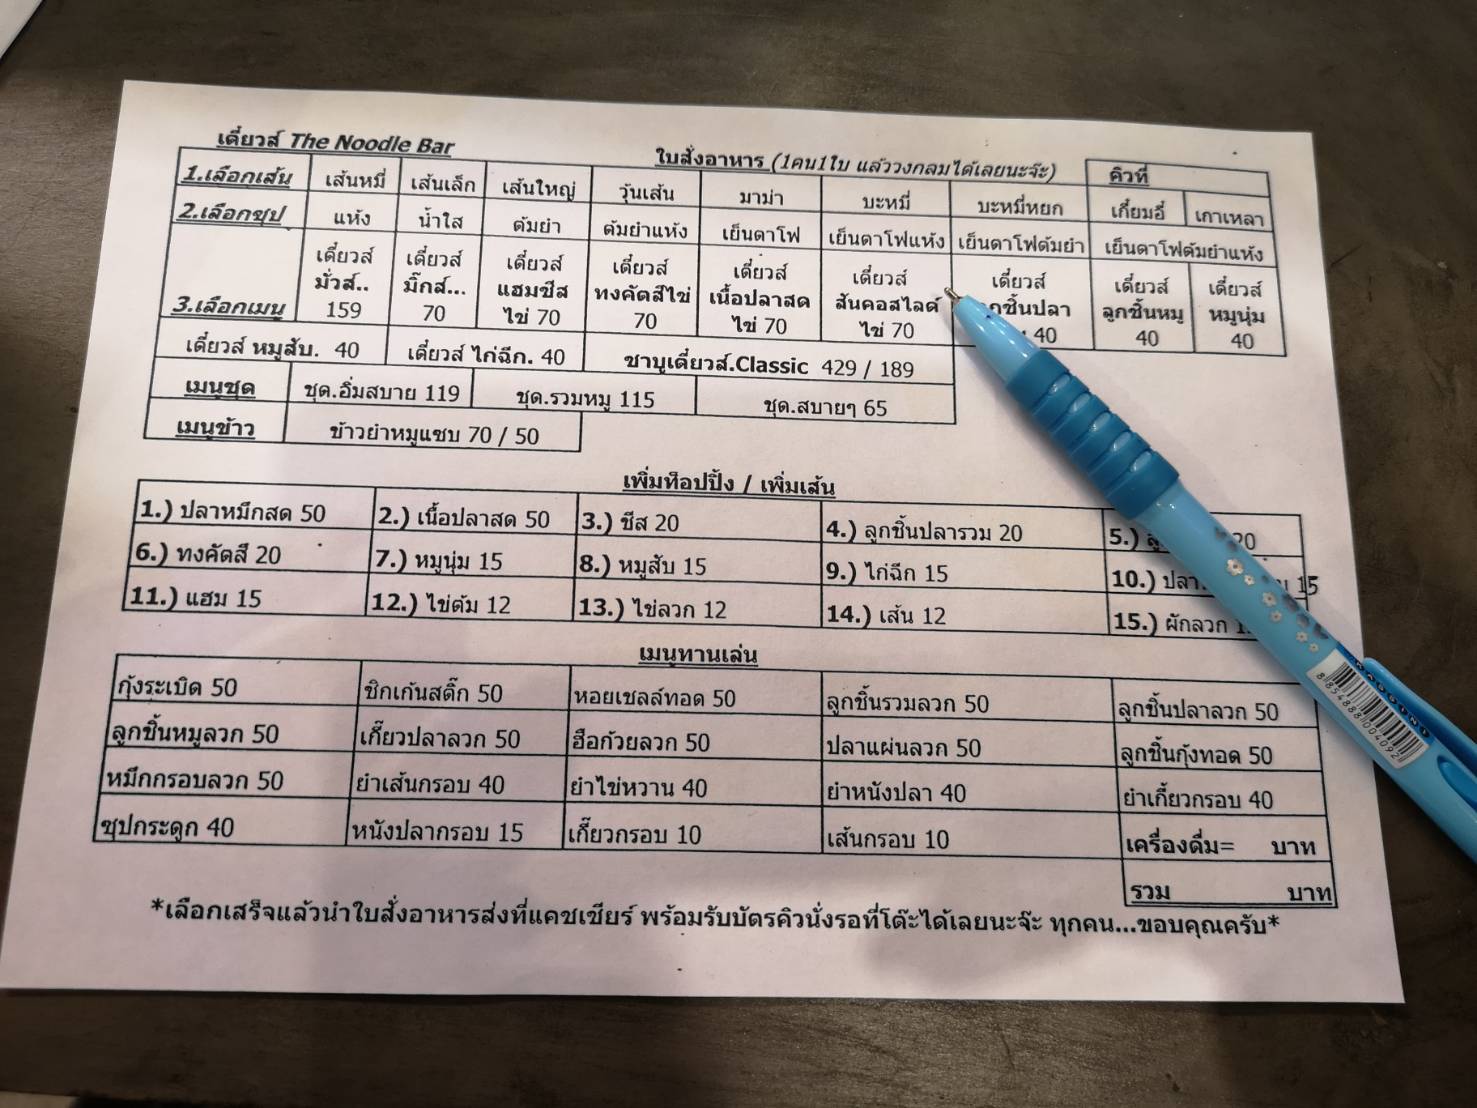 เดี่ยวส์ The Noodle Bar
ใบสั่งอาหาร (1คน1ใบ แล้ววงกลมได้เลยนะจ๊ะ)
คิวที่
1.เลือกเส้น เส้นหมี่ เส้นเล็ก เส้นใหญ่ วุ้นเส้น มาม่า บะหมี่ บะหมี่หยก เกี้ยมอี๋ เกาเหลา
2.เลือกซุป แห้ง น้ำใส ต้มยำ ต้มยำแห้ง เย็นตาโฟ เย็นตาโฟแห้ง เย็นตาโฟต้มยำ เย็นตาโฟต้มยำแห้ง
3.เลือกเมนู
เดี่ยวส์ มั่วส์.. 159
เดี่ยวส์ มิ๊กส์... 70
เดี่ยวส์ แฮมชีส ไข่ 70
เดี่ยวส์ ทงคัตสึไข่ 70
เดี่ยวส์ เนื้อปลาสด ไข่ 70
เดี่ยวส์ สันคอสไลด์ ไข่ 70
เดี่ยวส์ กชิ้นปลา 40
เดี่ยวส์ ลูกชิ้นหมู 40
เดี่ยวส์ หมูนุ่ม 40
เดี่ยวส์ หมูสับ. 40 เดี่ยวส์ ไก่ฉีก. 40 ชาบูเดี่ยวส์.Classic 429 / 189
เมนูชุด ชุด.อิ่มสบาย 119 ชุด.รวมหมู 115 ชุด.สบายๆ 65
เมนูข้าว ข้าวยำหมูแซบ 70 / 50
เพิ่มท็อปปิ้ง / เพิ่มเส้น
1.) ปลาหมึกสด 50 2.) เนื้อปลาสด 50 3.) ชีส 20 4.) ลูกชิ้นปลารวม 20 5.) 20
6.) ทงคัตสึ 20 7.) หมูนุ่ม 15 8.) หมูสับ 15 9.) ไก่ฉีก 15 10.) ปลา 15
11.) แฮม 15 12.) ไข่ต้ม 12 13.) ไข่ลวก 12 14.) เส้น 12 15.) ผักลวก
เมนูทานเล่น
กุ้งระเบิด 50 ชิกเก้นสติ๊ก 50 หอยเชลล์ทอด 50 ลูกชิ้นรวมลวก 50 ลูกชิ้นปลาลวก 50
ลูกชิ้นหมูลวก 50 เกี๊ยวปลาลวก 50 ฮือก้วยลวก 50 ปลาแผ่นลวก 50 ลูกชิ้นกุ้งทอด 50
หมึกกรอบลวก 50 ยำเส้นกรอบ 40 ยำไข่หวาน 40 ยำหนังปลา 40 ยำเกี๊ยวกรอบ 40
ซุปกระดูก 40 หนังปลากรอบ 15 เกี๊ยวกรอบ 10 เส้นกรอบ 10 เครื่องดื่ม= บาท
รวม บาท
*เลือกเสร็จแล้วนำใบสั่งอาหารส่งที่แคชเชียร์ พร้อมรับบัตรคิวนั่งรอที่โต๊ะได้เลยนะจ๊ะ ทุกคน...ขอบคุณครับ*
8854888004092